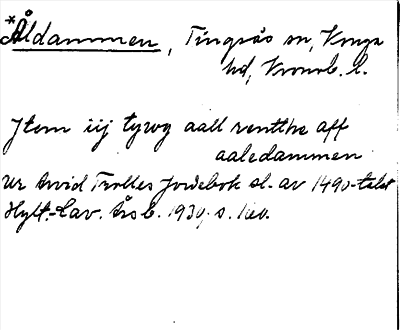 *Åldammen, Tingsås sn, Konga
hd, Kronob. l.
Jtem iij tywg aall rentthe aff
aaledammen
Ur Arvid Trolles jordebok sl. av 1490-talet
Hylt.-Cav. Årsb. 1939, s.